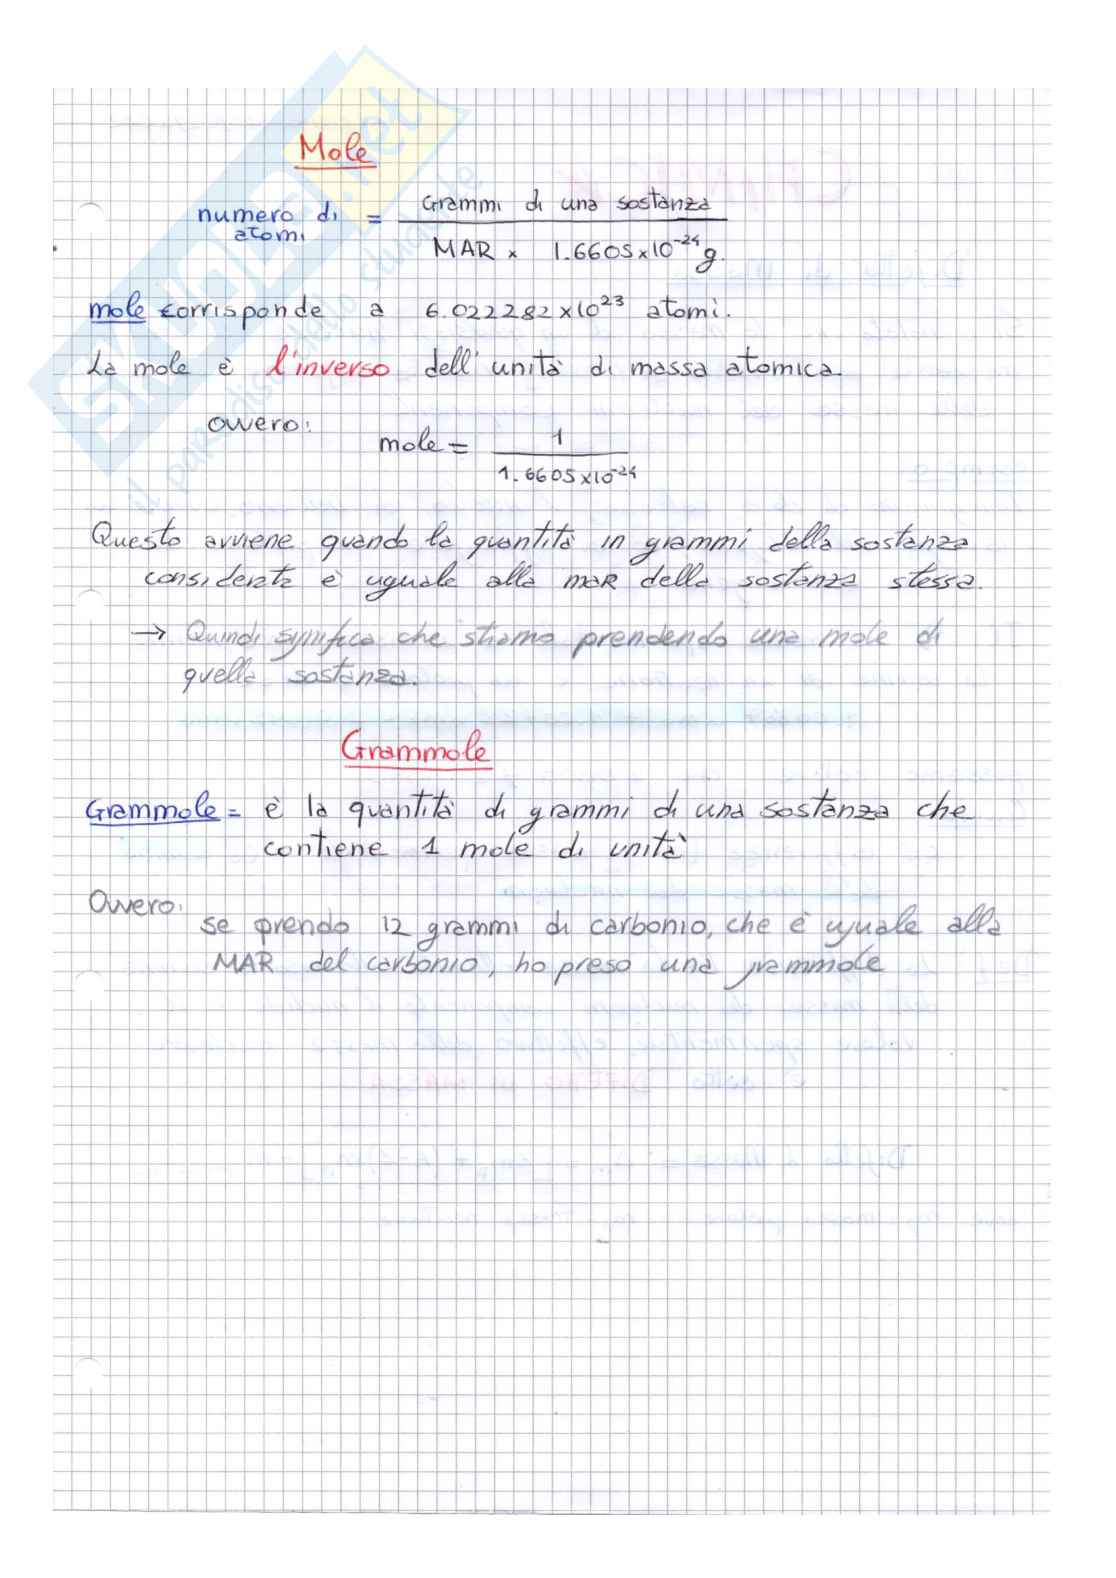 Mole
numero di atomi = Grammi di una sostanza / MAR x 1.6605x10⁻²⁴ g.
mole corrisponde a 6.022282x10²³ atomi.
La mole è l'inverso dell'unità di massa atomica
ovvero: mole = 1 / 1.6605x10⁻²⁴
Questo avviene quando la quantità in grammi della sostanza
considerata è uguale alla MAR della sostanza stessa.
→ Quindi significa che stiamo prendendo una mole di
quella sostanza.
Grammole
Grammole = è la quantità di grammi di una sostanza che
contiene 1 mole di unità
Ovvero: se prendo 12 grammi di carbonio, che è uguale alla
MAR del carbonio, ho preso una grammole
SKUOLA.net
il paradiso dello studente